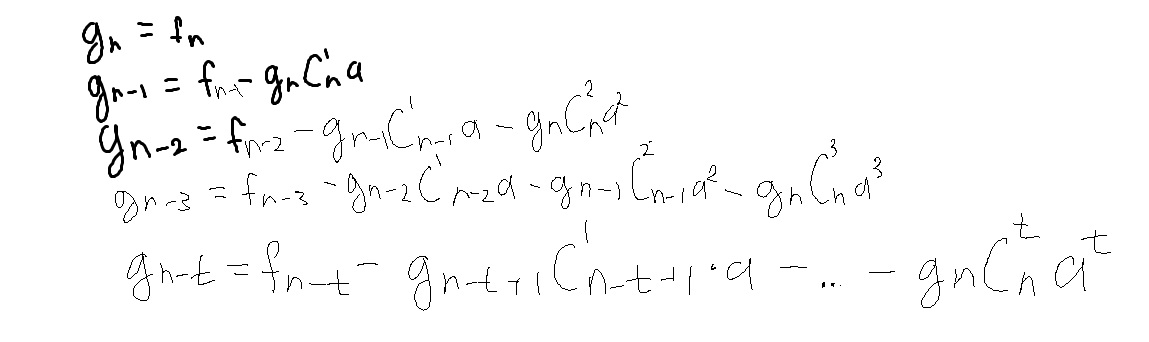 gₙ = fₙ
gₙ₋₁ = fₙ₋₁ - gₙCₙ¹a
gₙ₋₂ = fₙ₋₂ - gₙ₋₁Cₙ₋₁¹a - gₙCₙ²a²
gₙ₋₃ = fₙ₋₃ - gₙ₋₂Cₙ₋₂¹a - gₙ₋₁Cₙ₋₁²a² - gₙCₙ³a³
gₙ₋ₜ = fₙ₋ₜ - gₙ₋ₜ₊₁Cₙ₋ₜ₊₁¹·a - ... - gₙCₙᵗaᵗ